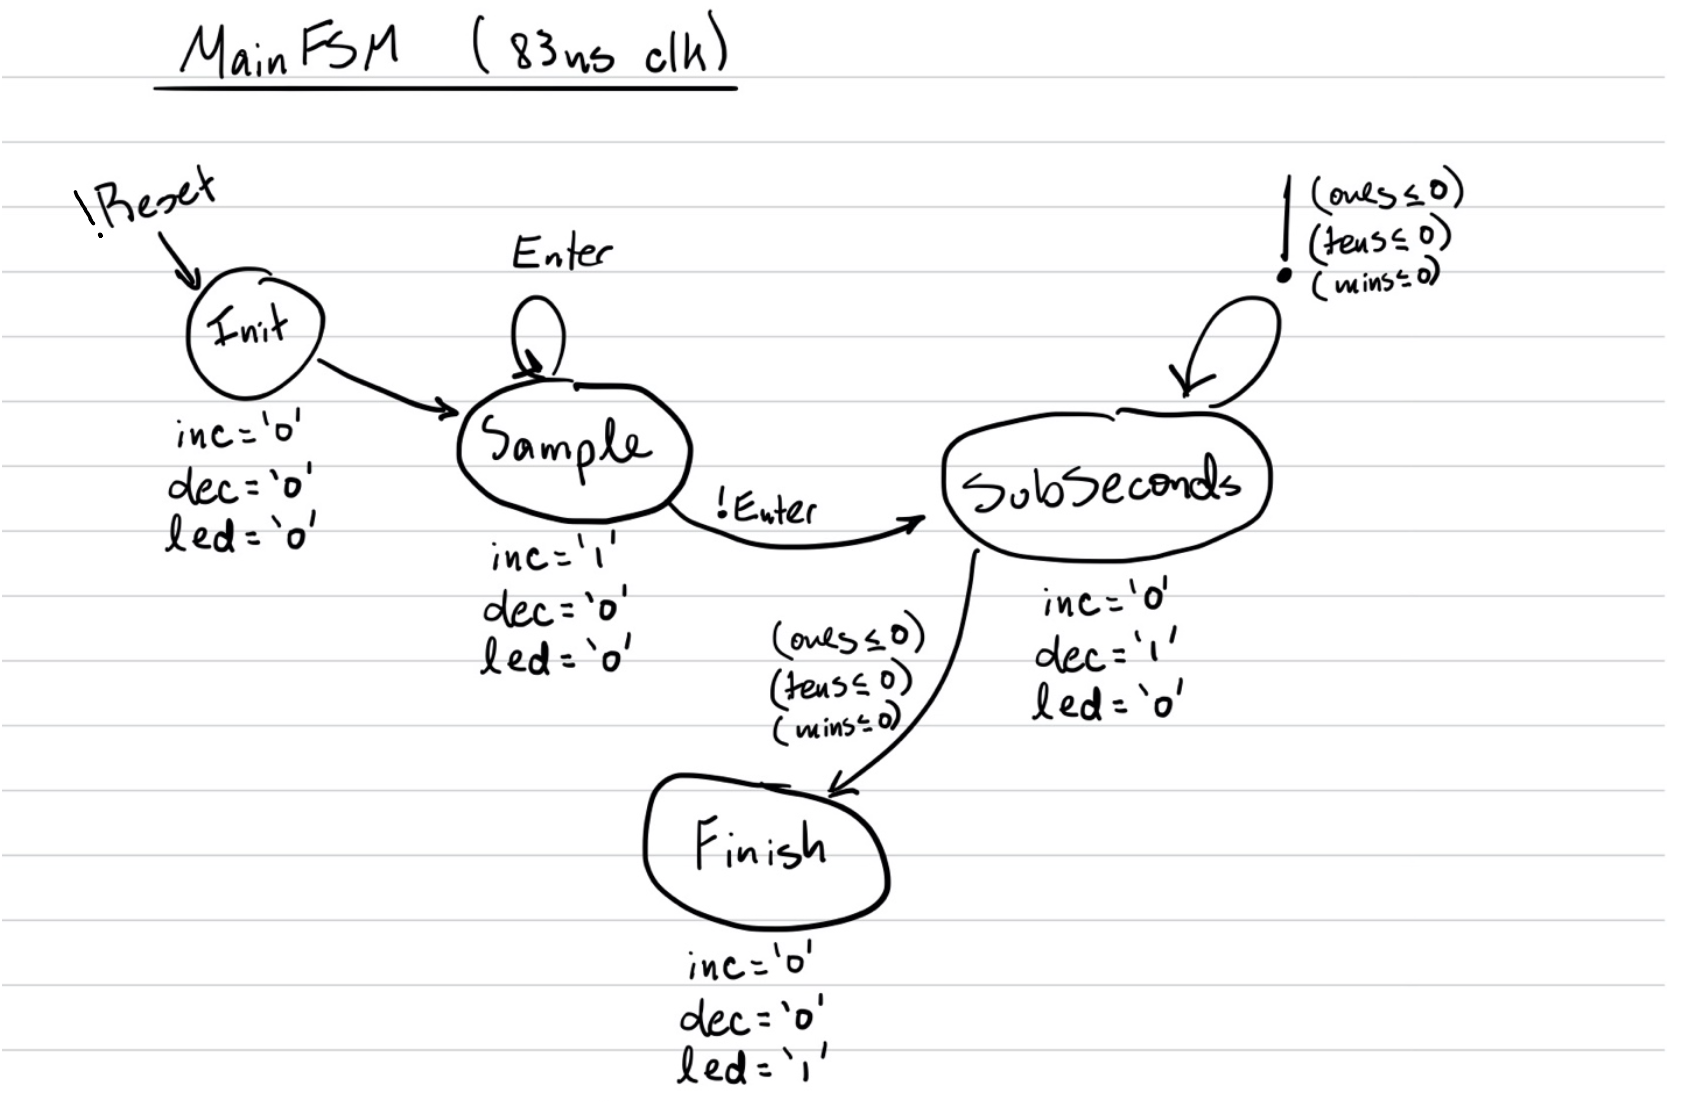 MainFSM (83ns clk)
!Reset
Init
inc='0'
dec='0'
led='0'
Enter
Sample
inc='1'
dec='0'
led='0'
!Enter
! (ones≤0)
(tens≤0)
(mins≤0)
SubSeconds
inc='0'
dec='1'
led='0'
(ones≤0)
(tens≤0)
(mins≤0)
Finish
inc='0'
dec='0'
led='1'